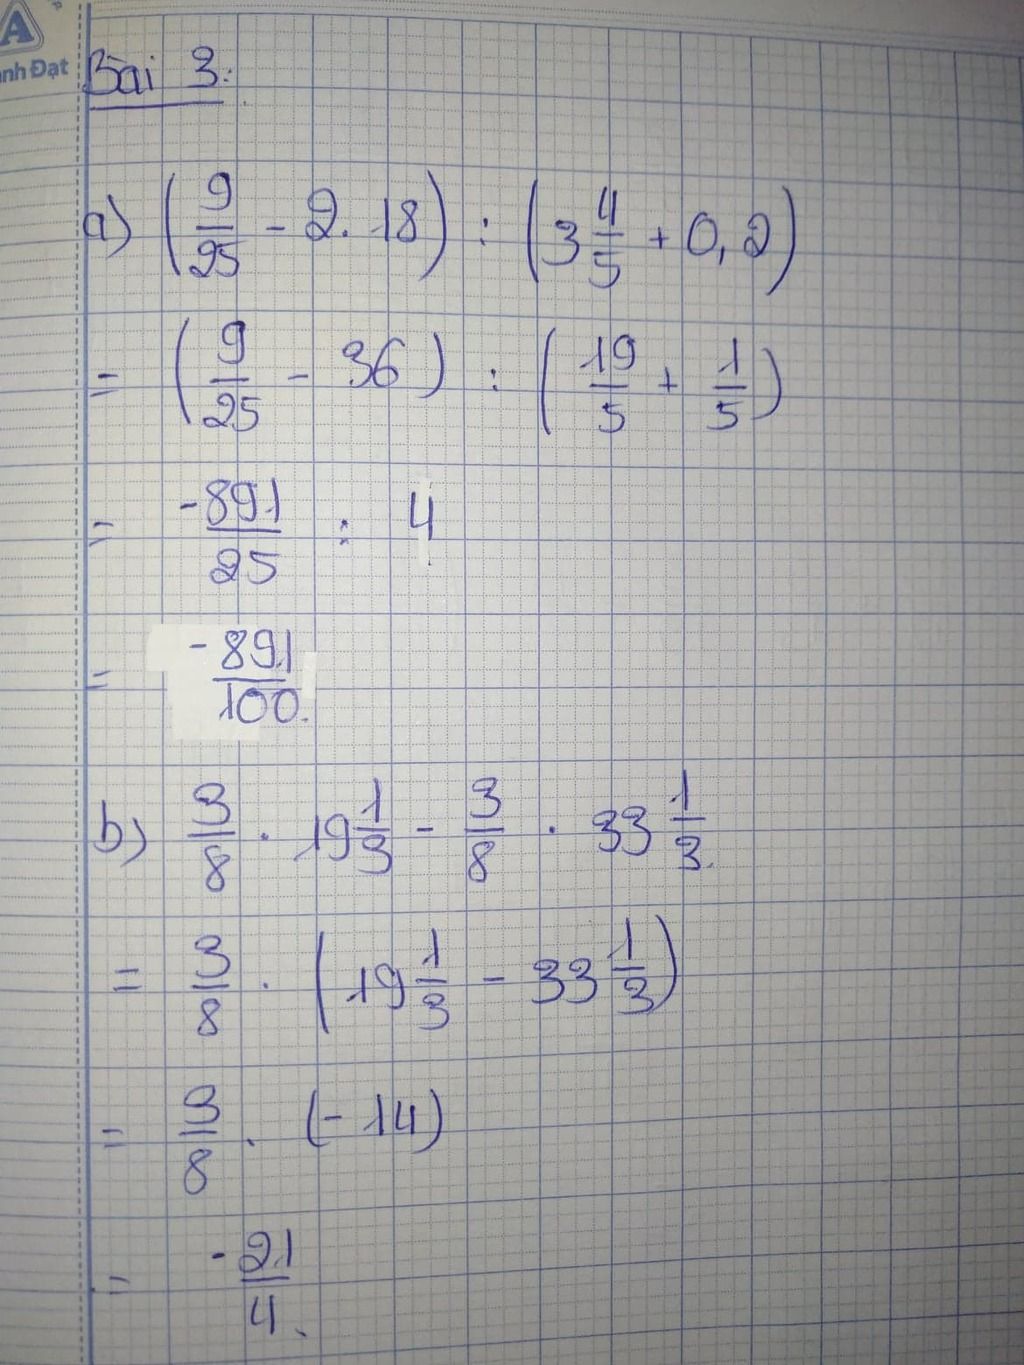 A
anh Đạt
Bài 3:
a) (9/25 - 2. 18) : (3 4/5 + 0,2)
= (9/25 - 36) : (19/5 + 1/5)
= -891/25 : 4
= -891/100.
b) 3/8 . 19 1/3 - 3/8 . 33 1/3.
= 3/8 . (19 1/3 - 33 1/3)
= 3/8 . (-14)
= -21/4.